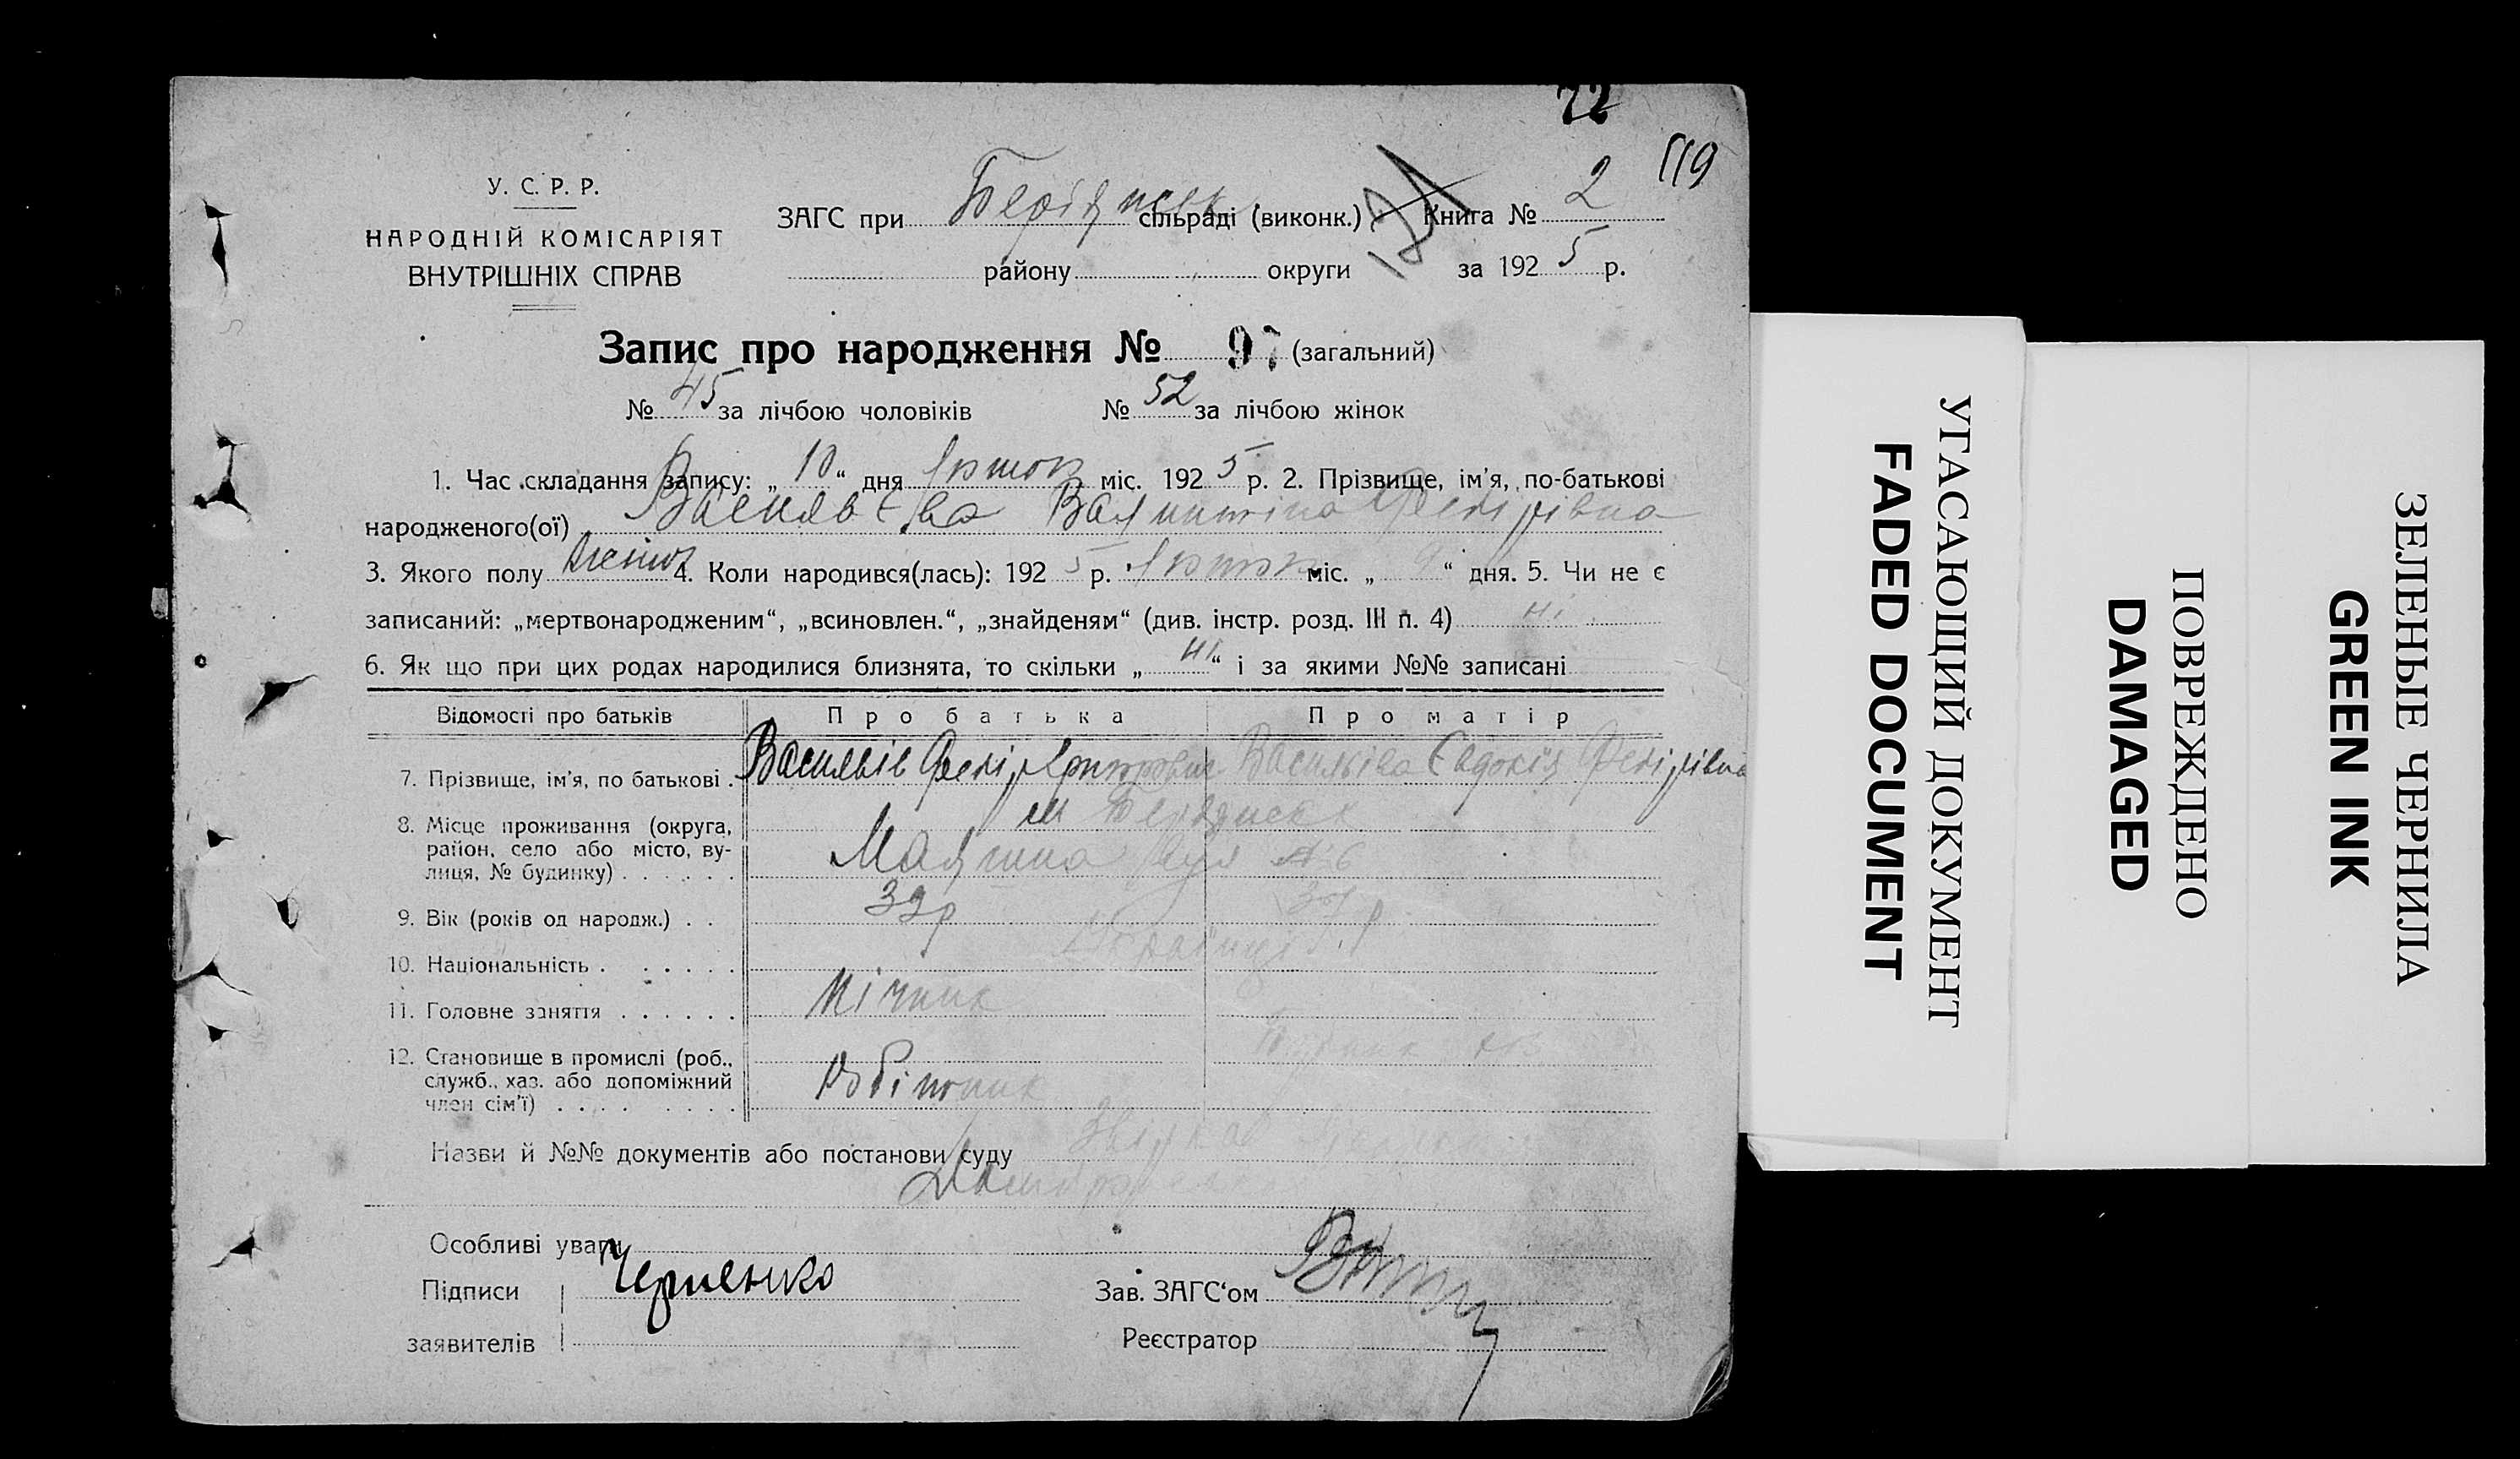 72
119
У. С. Р. Р.
НАРОДНІЙ КОМІСАРІЯТ
ВНУТРІШНІХ СПРАВ
ЗАГС при сільраді (виконк.) Книга № 2
району округи за 1925 р.
Запис про народження № 97 (загальний)
№ 45 за лічбою чоловіків № 52 за лічбою жінок
1. Час складання запису: „ 10 “ дня міс. 1925 р. 2. Прізвище, ім'я, по-батькові
народженого(ої) Валинтіна Федірівна
3. Якого полу 4. Коли народився(лась): 1925 р. міс. „ “ дня. 5. Чи не є
записаний: „мертвонародженим“, „всиновлен.“, „знайденям“ (див. інстр. розд. III п. 4) ні
6. Як що при цих родах народилися близнята, то скільки „ ні “ і за якими №№ записані
Відомості про батьків Про батька Про матір
7. Прізвище, ім'я, по батькові . Васильів Федір Василіва Євдокія Федірівна
8. Місце проживання (округа,
район, село або місто, ву-
лиця, № будинку) . . . . . . вул № 6
9. Вік (років од народж.) . . 32р
10. Національність . . . . . . Українці
11. Головне заняття . . . . . . Пічник
12. Становище в промислі (роб.,
служб., хаз. або допоміжний
член сім'ї) . . . . . . . . Робітник
Назви й №№ документів або постанови суду
Особливі уваги
Підписи Черненко Зав. ЗАГС‘ом
заявителів Реєстратор
УГАСАЮЩИЙ ДОКУМЕНТ
FADED DOCUMENT
ПОВРЕЖДЕНО
DAMAGED
ЗЕЛЕНЫЕ ЧЕРНИЛА
GREEN INK